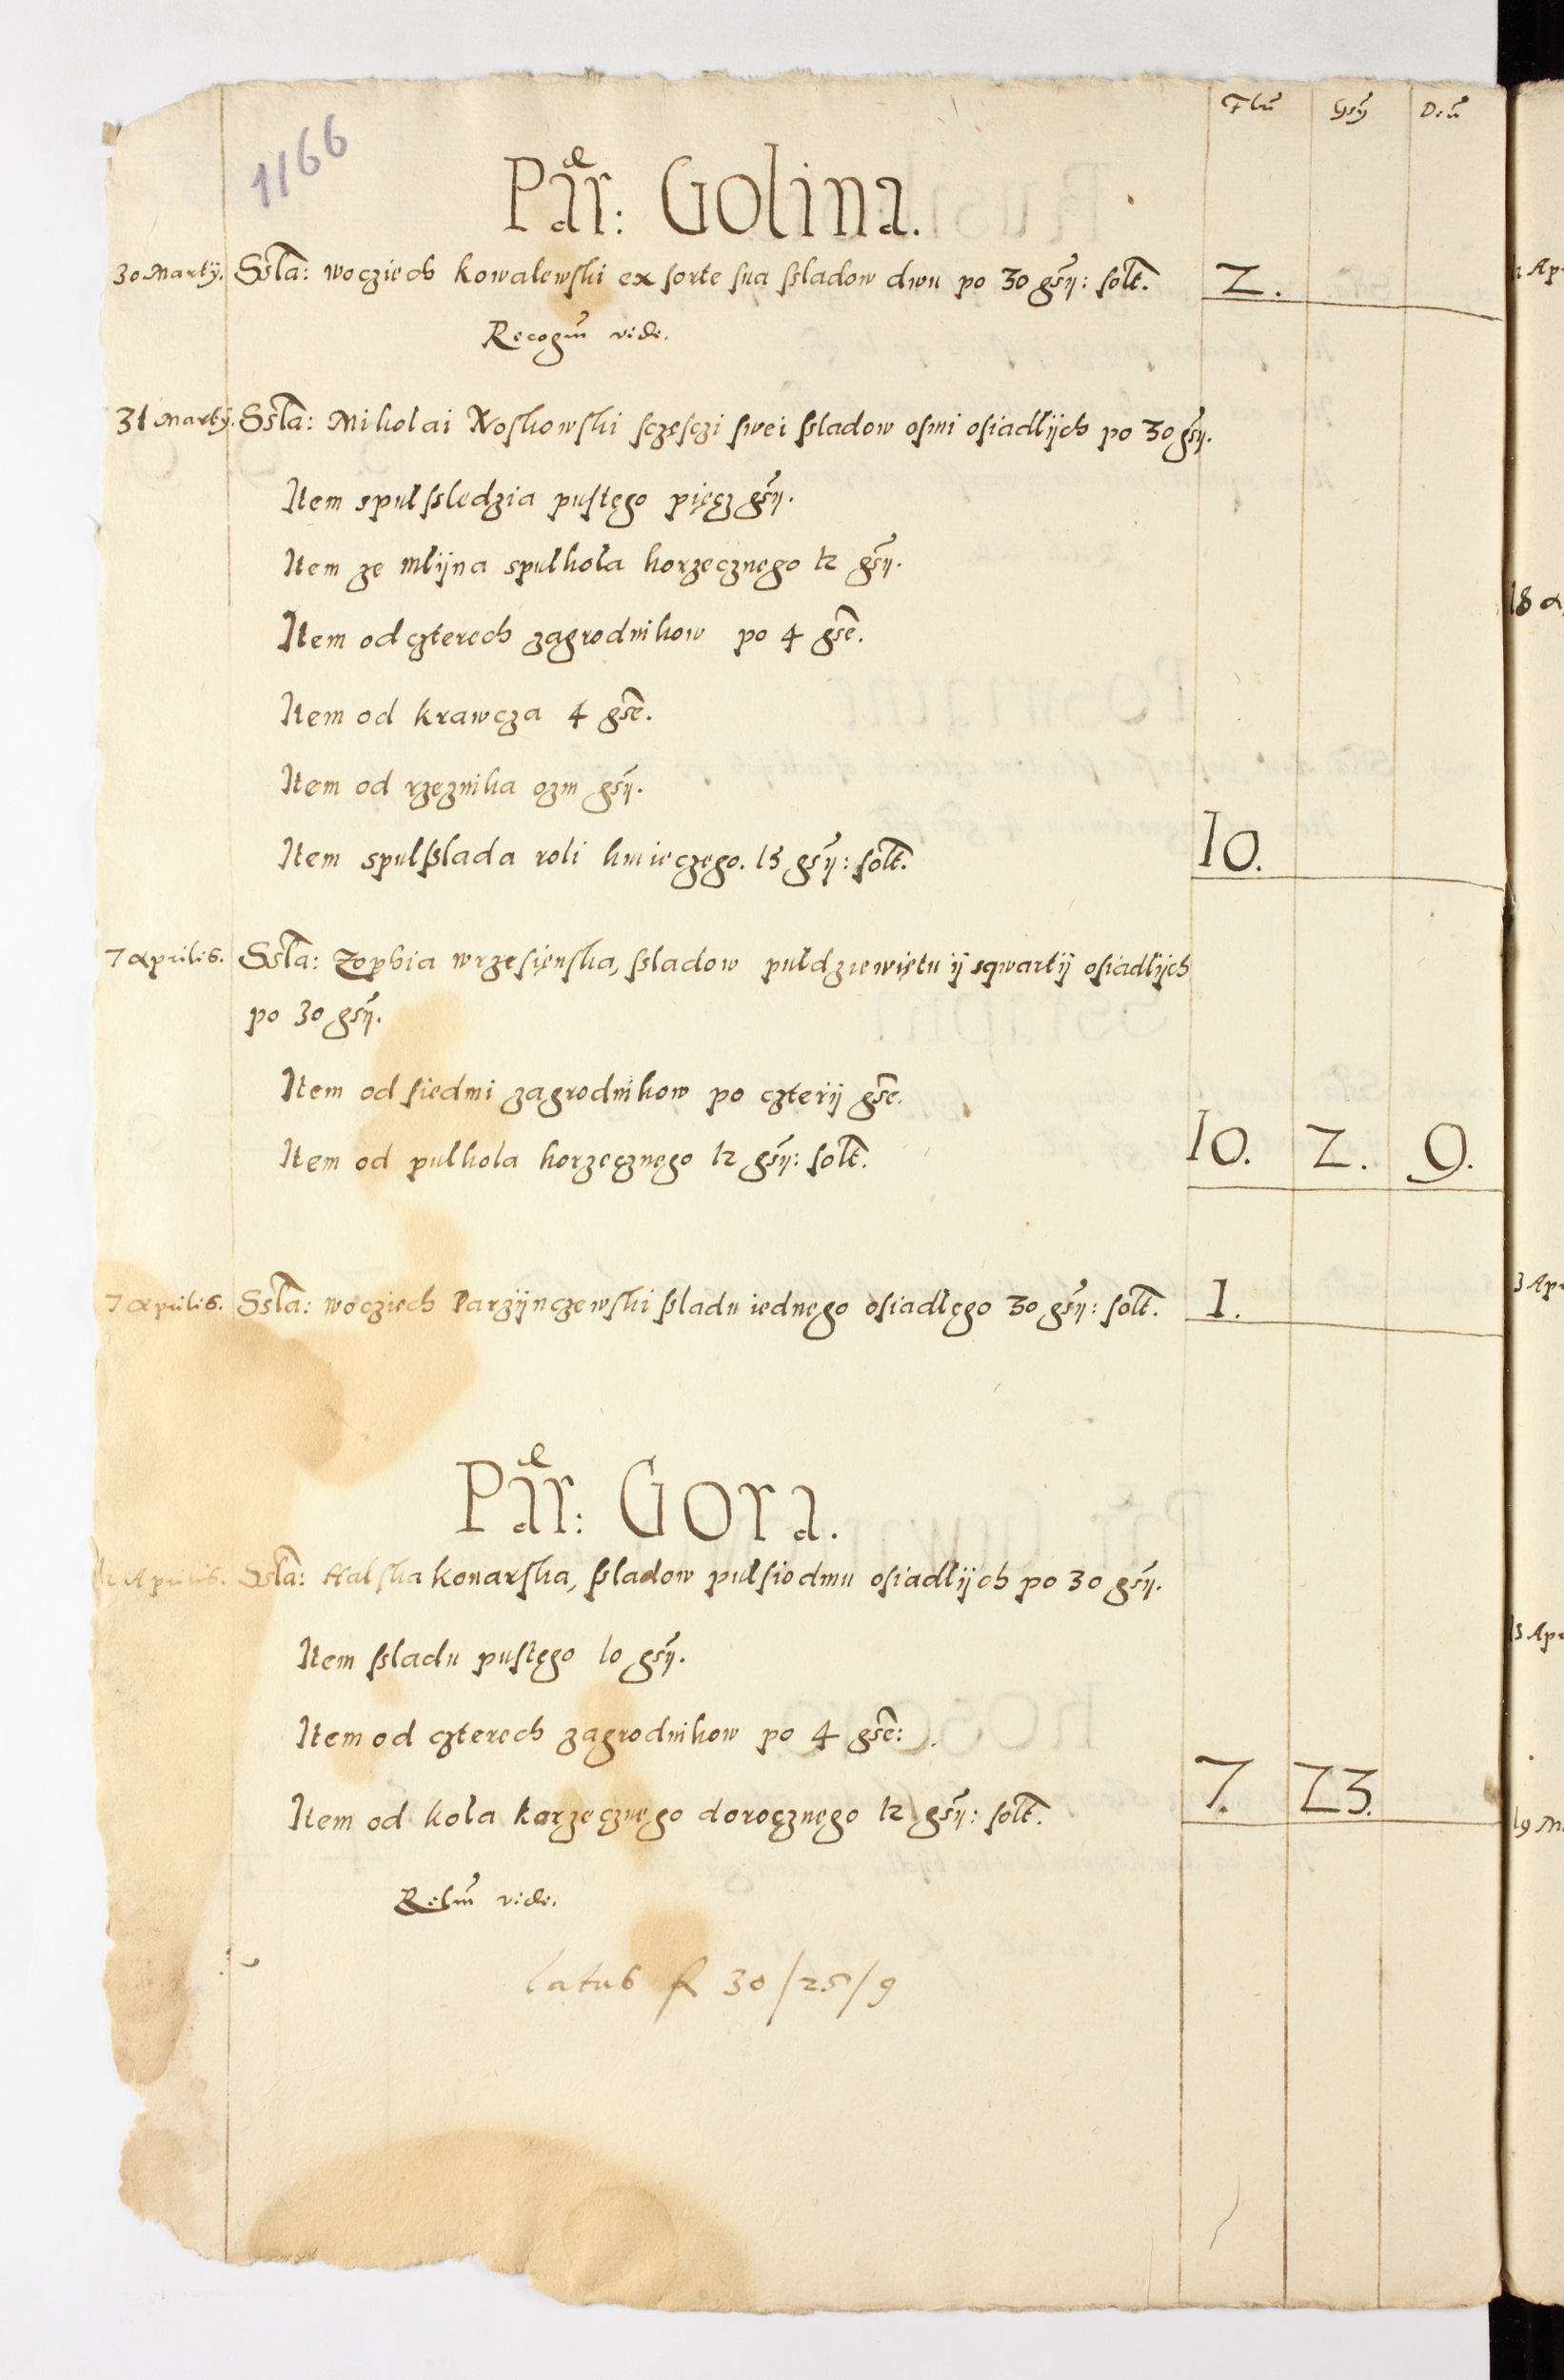 1166
Flũ Gsỹ Deñ
Par̃: Golina.
30 Martij. Ssla: Wocziech Kowalewski ex sorte sua ssladow dwu po 30 gsy: solt. 2.
Recogm vide.
31 Martij. Ssla: Mikolai Noskowski sczesczi swei ssladow osmi osiadlÿch po 30 gsy.
Item spul ssledzia pustego pięcz gsy.
Item ze mlÿna spulkola korzecznego 12 gsy.
Item od czterech zagrodnikow po 4 gse.
Item od krawcza 4 gse.
Item od rzeznika ozm gsy.
Item spulsslada roli kmieczego. 15 gsy: solt. 10.
7 Aprilis. Ssla: Zophia Wrzesięnska, ssladow puldziewiętu ij sqwartij osiadlÿch
po 30 gsy.
Item od siedmi zagrodnikow po czterij gse.
Item od pulkola korzecznego 12 gsy: solt. 10. 2. 9.
7 Aprilis. Ssla: Wocziech Parzÿnczewski ssladu iednego osiadlego 30 gsy: solt. 1.
Par̃: Gora.
Aprilis. Ssla: Halska Konarska, ssladow pulsiodmu osiadlÿch po 30 gsy.
Item ssladu pustego 10 gsy.
Item od czterech zagrodnikow po 4 gse:
Item od kola karzecznego dorocznego 12 gsy: solt. 7. 23.
vide.
latus f 30/25/9